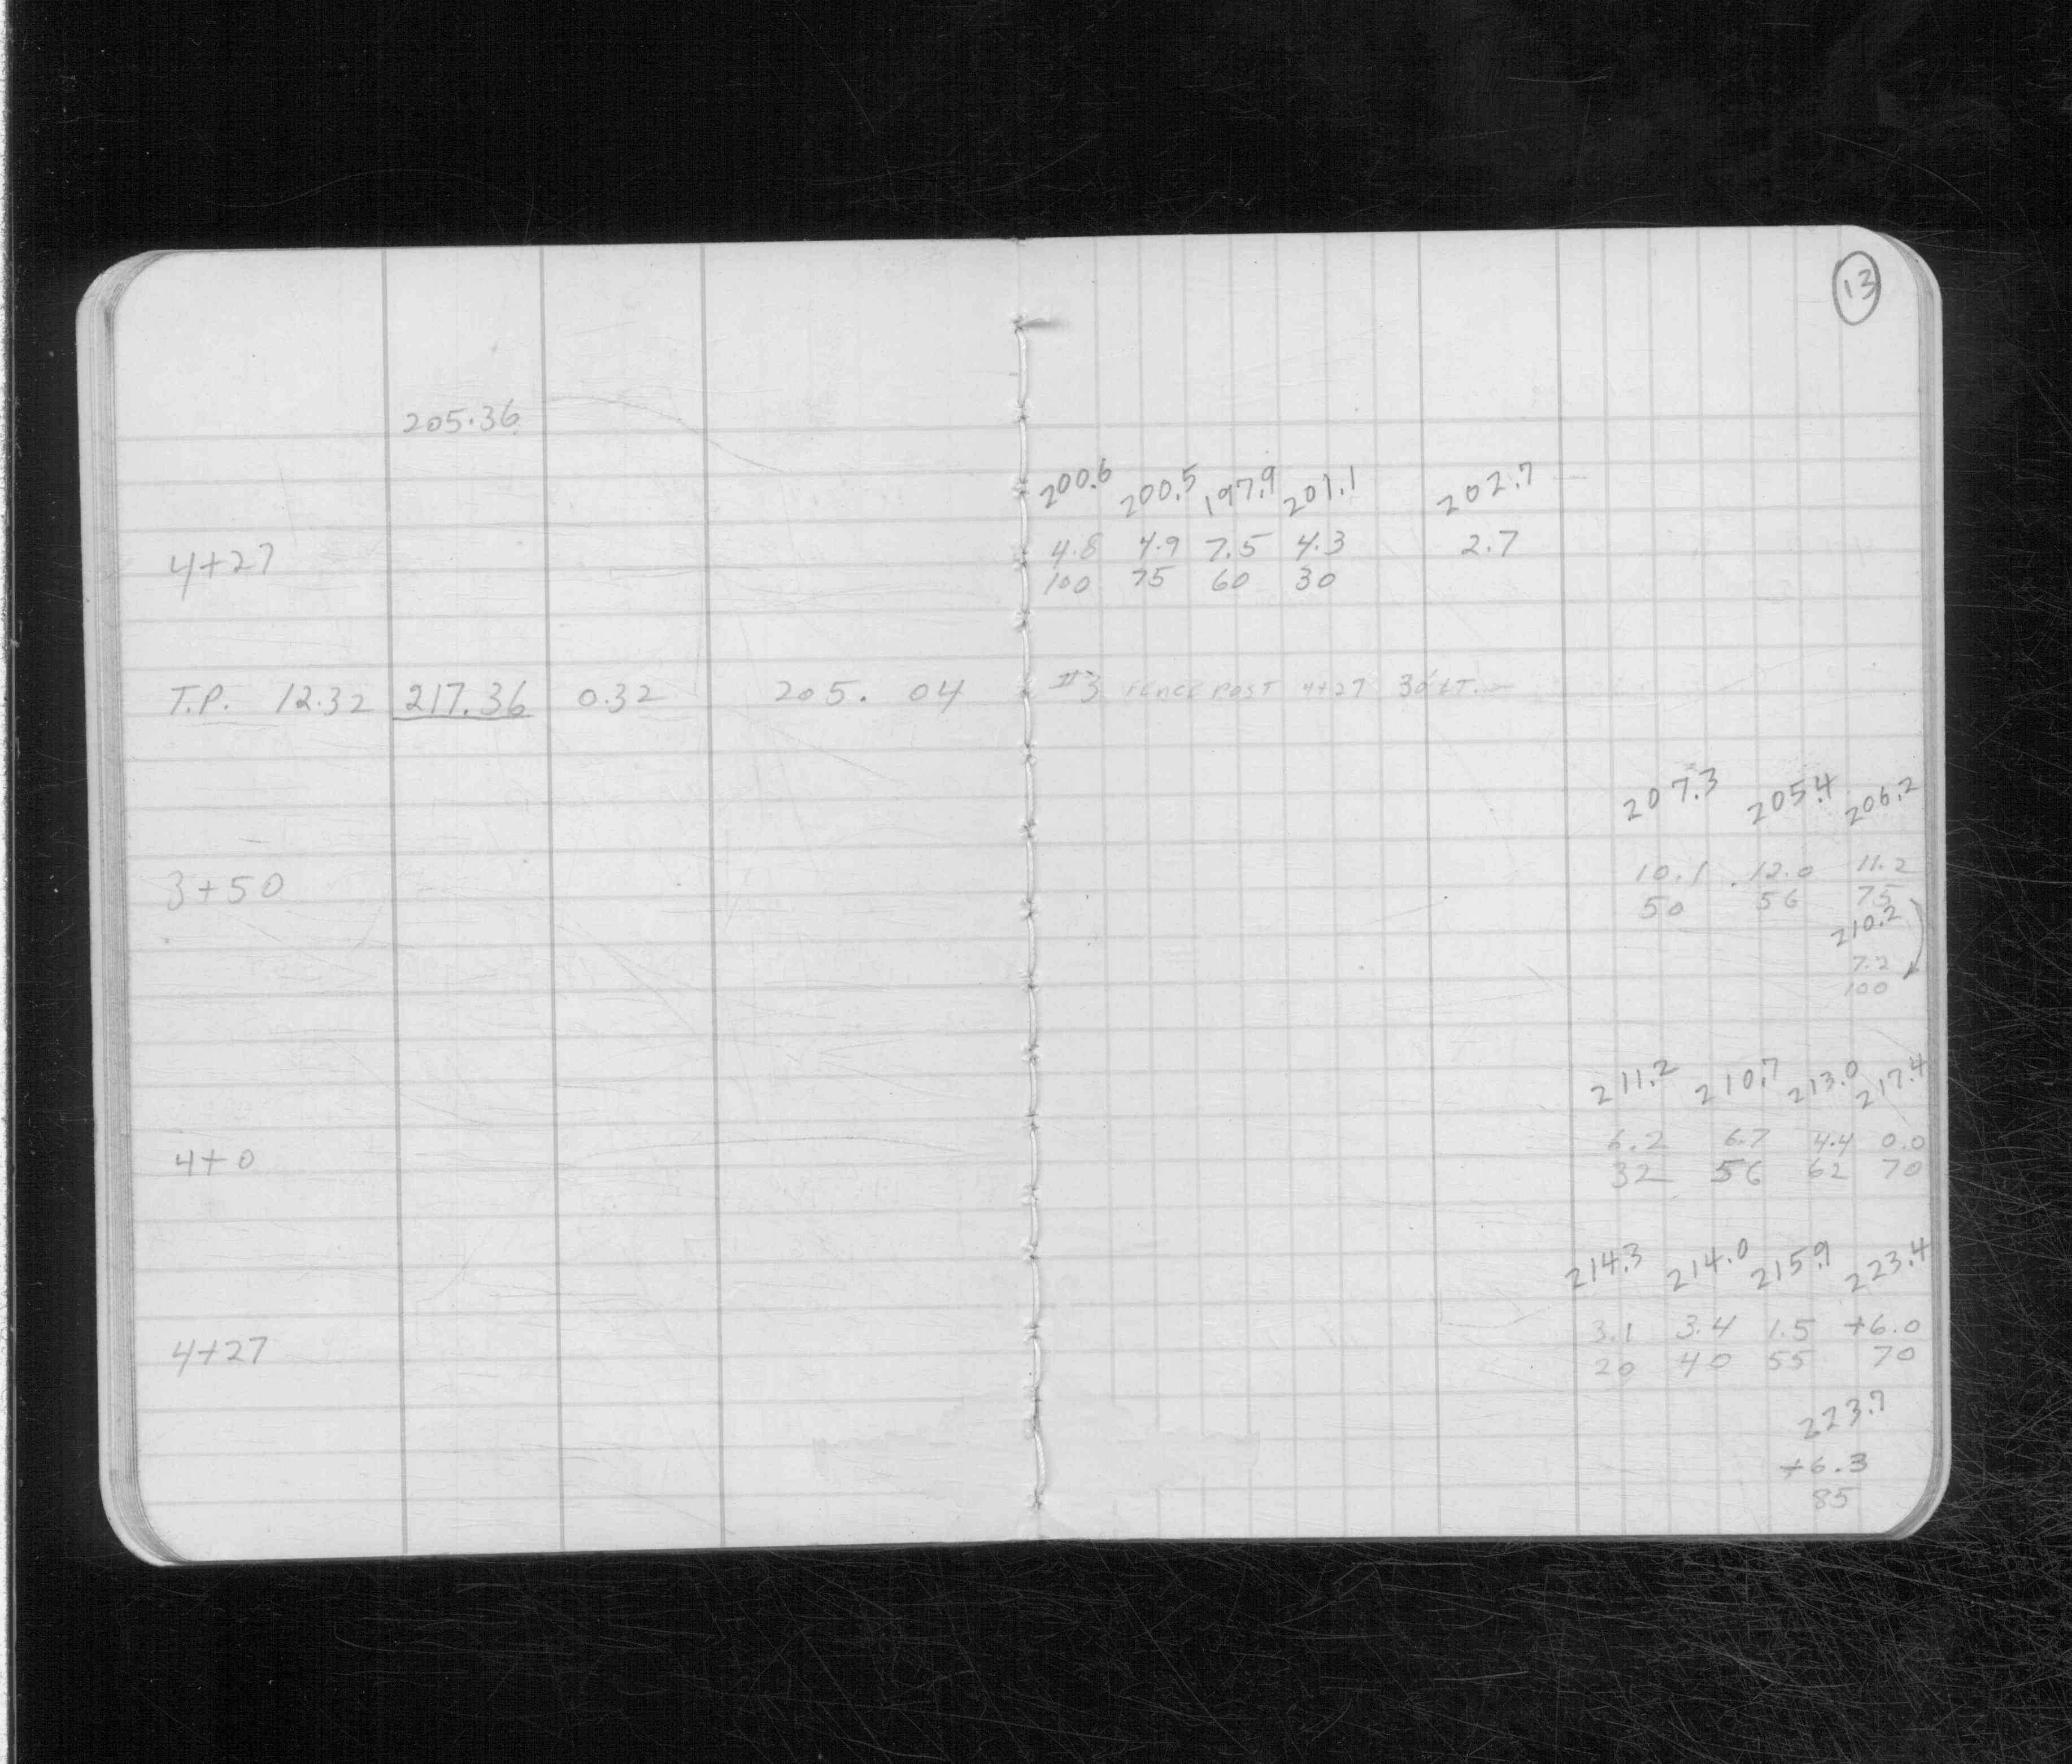 13
205.36
200.6 200.5 197.9 201.1 202.7
4+27 4.8 4.9 7.5 4.3 2.7
100 75 60 30
T.P. 12.32 217.36 0.32 205. 04 #3 FENCE POST 4+27 30' LT.
207.3 205.4 206.2
3+50 10.1 12.0 11.2
50 56 75
210.2
7.2
100
211.2 210.7 213.0 217.4
4+0 6.2 6.7 4.4 0.0
32 56 62 70
214.3 214.0 215.9 223.4
4+27 3.1 3.4 1.5 +6.0
20 40 55 70
223.7
+6.3
85